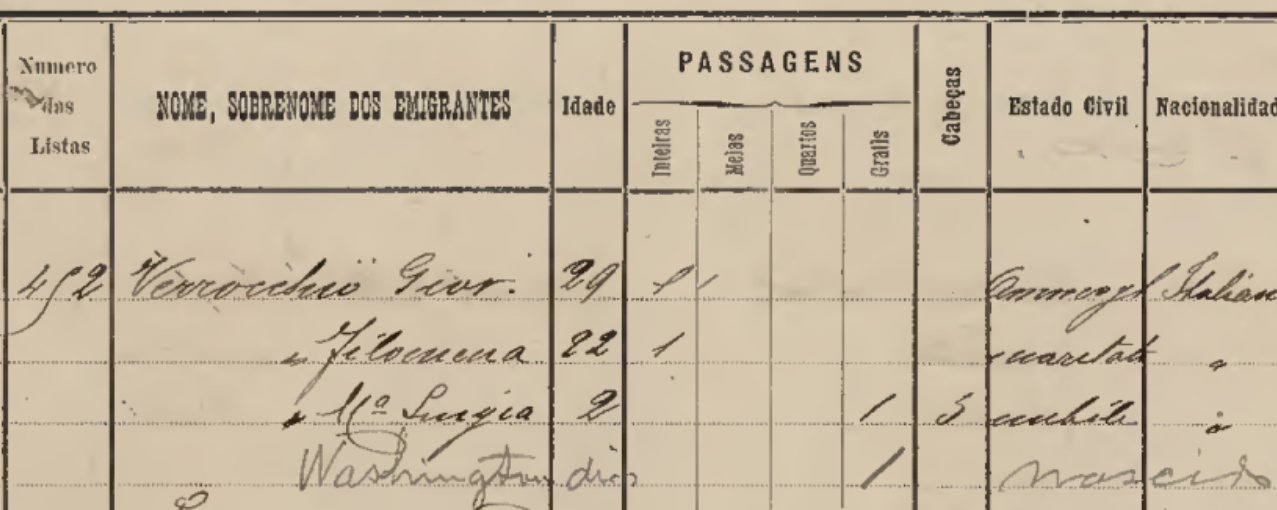 PASSAGENS
Numero das Listas NOME, SOBRENOME DOS EMIGRANTES Idade Inteiras Meias Quartos Gratis Cabeças Estado Civil Nacionalidad
452 Verrocchio Giov. 29 1 Ammogl Italiano
" Filomena 22 1 maritat "
" Mª Luigia 2 1 3 nubile "
Washington dias 1 nascido